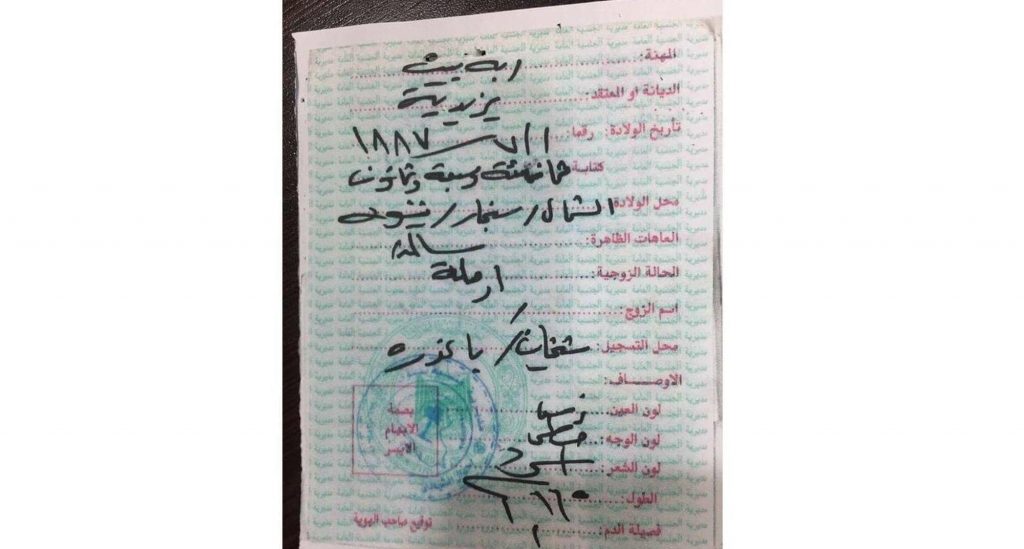 المهنة: ربة بيت
الديانة أو المعتقد: يزيدية
تأريخ الولادة: رقما: ١٨٨٧
كتابة وسبعة وثمانون
محل الولادة: الشمال / سنجار / نينوى
العاهات الظاهرة: سالمة
الحالة الزوجية: ارملة
اسم الزوج:
محل التسجيل: شيخان / باعذره
الاوصاف:
لون العين:
لون الوجه: حنطي
لون الشعر: اسود
الطول: ١٦٥
فصيلة الدم:
بصمة
الابهام
الايسر
توقيع صاحب الهوية